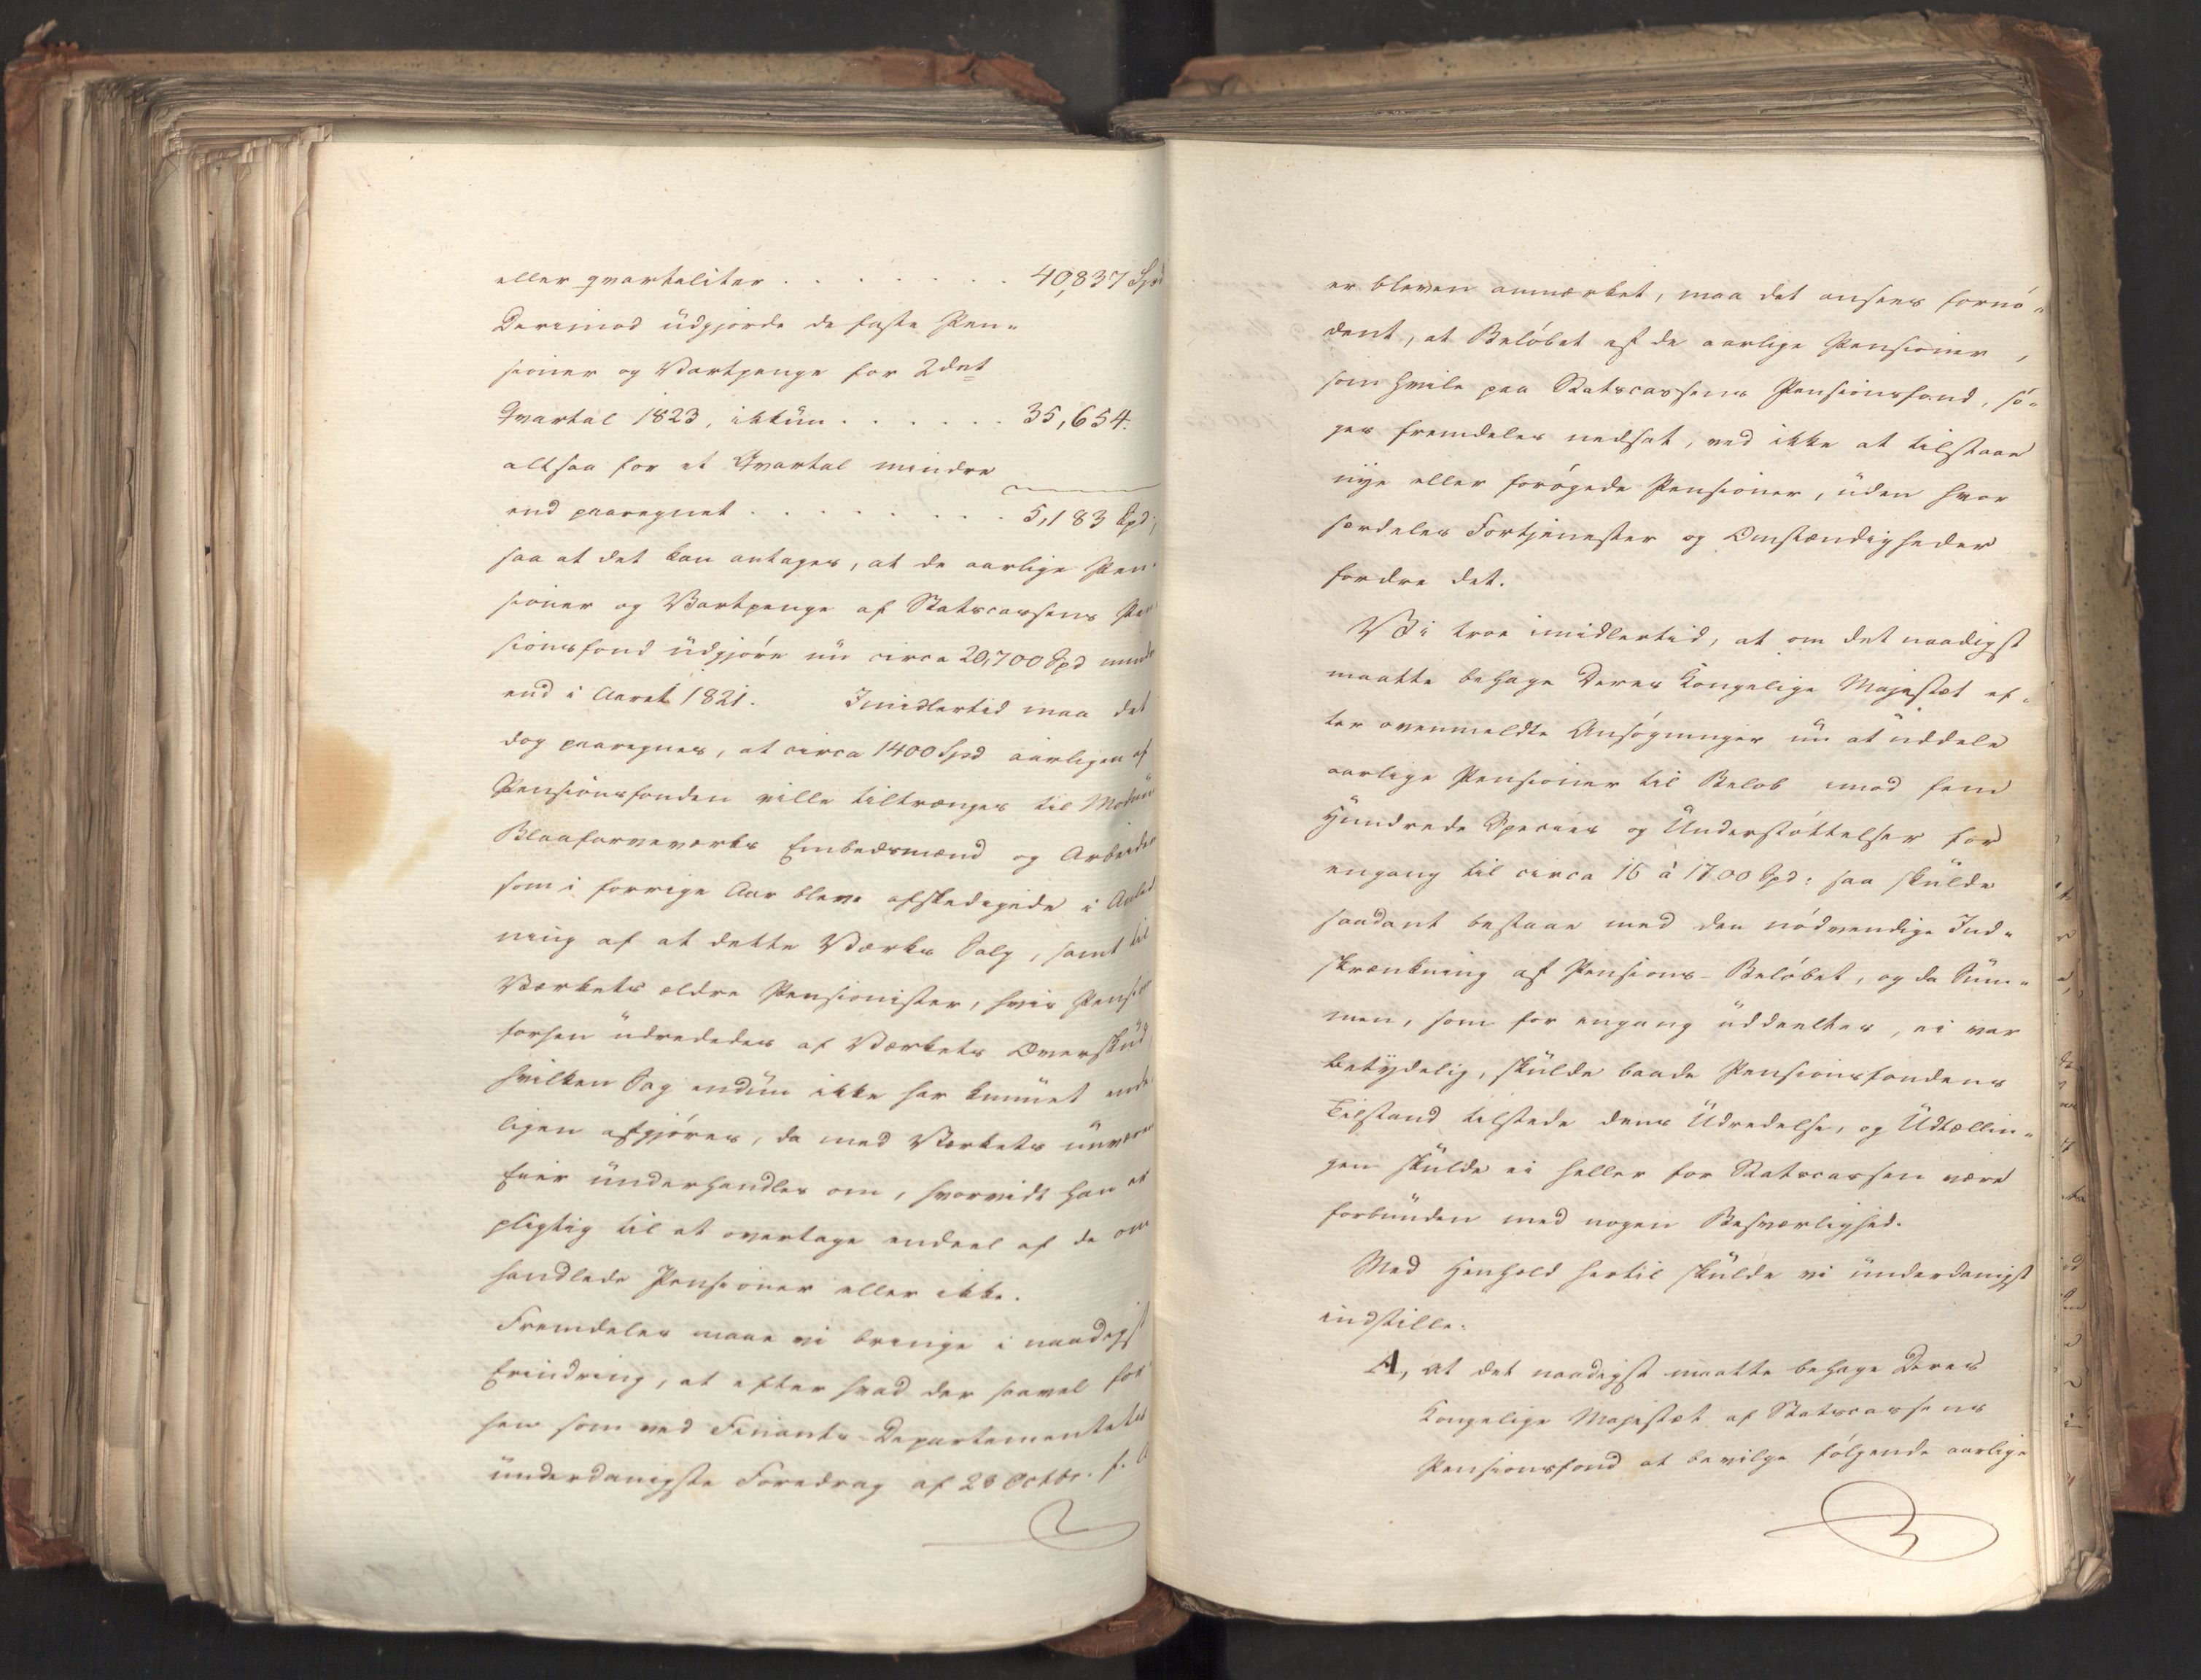 eller qvartaliter . . . . . . . 40,837 Spd
Derimod üdgjorde de faste Pen-
sioner og Vartpenge for 2det
Qvartal 1823, ikkün . . . . . . 35,654.
altsaa for et Qvartal mindre
end paaregnet . . . . . . . . . 5,183 Spd;
saa at det kan antages, at de aarlige Pen-
sioner og Vartpenge af Statscassens Pen-
sionsfond üdgjóre nü circa 20,700 Spd mindre
end i Aaret 1821. Imidlertid maa det
dog paaregnes, at circa 1400 Spd aarligen af
Pensionsfonden ville tiltrænges til Modums
Blaafarveværks Embedsmænd og Arbeidere
som i forrige Aar bleve afskedigede i Anled
ning af at dette Værks Salg, samt til
Værkets ældre Pensionister, hvis Pension
forhen üdrededes af Værkets Overskud
hvilken Sag endnü ikke har kunnet ende-
ligen afgjóres, da med Værkets nüværende
Eier ünderhandles om, hvorvidt han er
pligtig til at overtage endeel af de om
handlede Pensioner eller ikke.
Fremdeles maae vi bringe i naadigst
Erindring, at efter hvad der saavel for
hen som ved Finants-Departementets
ünderdanigste Foredrag af 28 Octbr. f. A
er bleven anmærket, maa det ansees fornó-
dent, at Belóbet af de aarlige Pensioner,
som hvile paa Statscassens Pensionsfond, só-
ges fremdeles nedsat, ved ikke at tilstaae
nye eller forógede Pensioner, üden hvor
særdeles Fortjenester og Omstændigheder
fordre det.
Vi troe imidlertid, at om det naadigst
maatte behage Deres Kongelige Majestæt ef-
ter ovenmeldte Ansógninger nü at üddele
aarlige Pensioner til Belob imod fem
Hündrede Species og Ünderstóttelser for
engang til circa 16 à 1700 Spd: saa skülde
saadant bestaae med den nódvendige Ind-
skrænkning af Pensions-Belóbet, og da Süm-
men, som for engang üddeeltes, ei var
betydelig, skülde baade Pensionsfondens
Tilstand tilstede dens Üdredelse, og Üdtællin-
gen skülde ei heller for Statscassen være
forbünden med nogen Besværlighed.
Med Henhold hertil skülde vi ünderdanigst
indstille:
A, at det naadigst maatte behage Deres
Kongelige Majestæt af Statscassens
Pensionsfond at bevilge fólgende aarlige